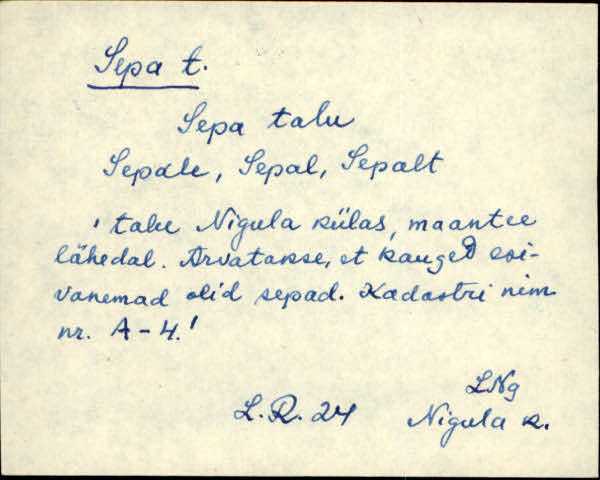 Sepa t.
Sepa talu
Sepale, Sepal, Sepalt
' talu Nigula külas, maantee
lähedal. Arvatakse, et kauged esi-
vanemad olid sepad. Kadastri nim.
nr. A-4.'
LNg
L.R. 24 Nigula k.